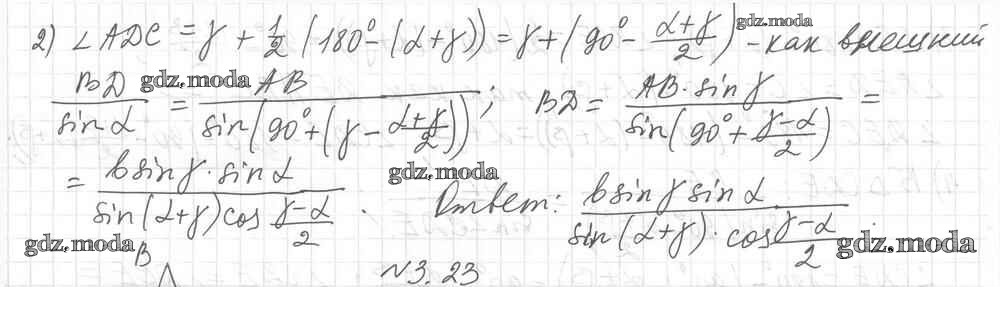 2) ∠ADC = γ + 1/2 (180° - (α+γ)) = γ + (90° - (α+γ)/2) - как внешний
gdz.moda
BD/sin α = AB/sin(90° + (γ - (α+γ)/2)); BD = AB·sin γ/sin(90° + (γ-α)/2) =
gdz.moda
= b sin γ · sin α/sin(α+γ) cos (γ-α)/2. Ответ: b sin γ sin α/sin(α+γ) · cos (γ-α)/2.
gdz.moda
gdz.moda
gdz.moda
B
№3.23